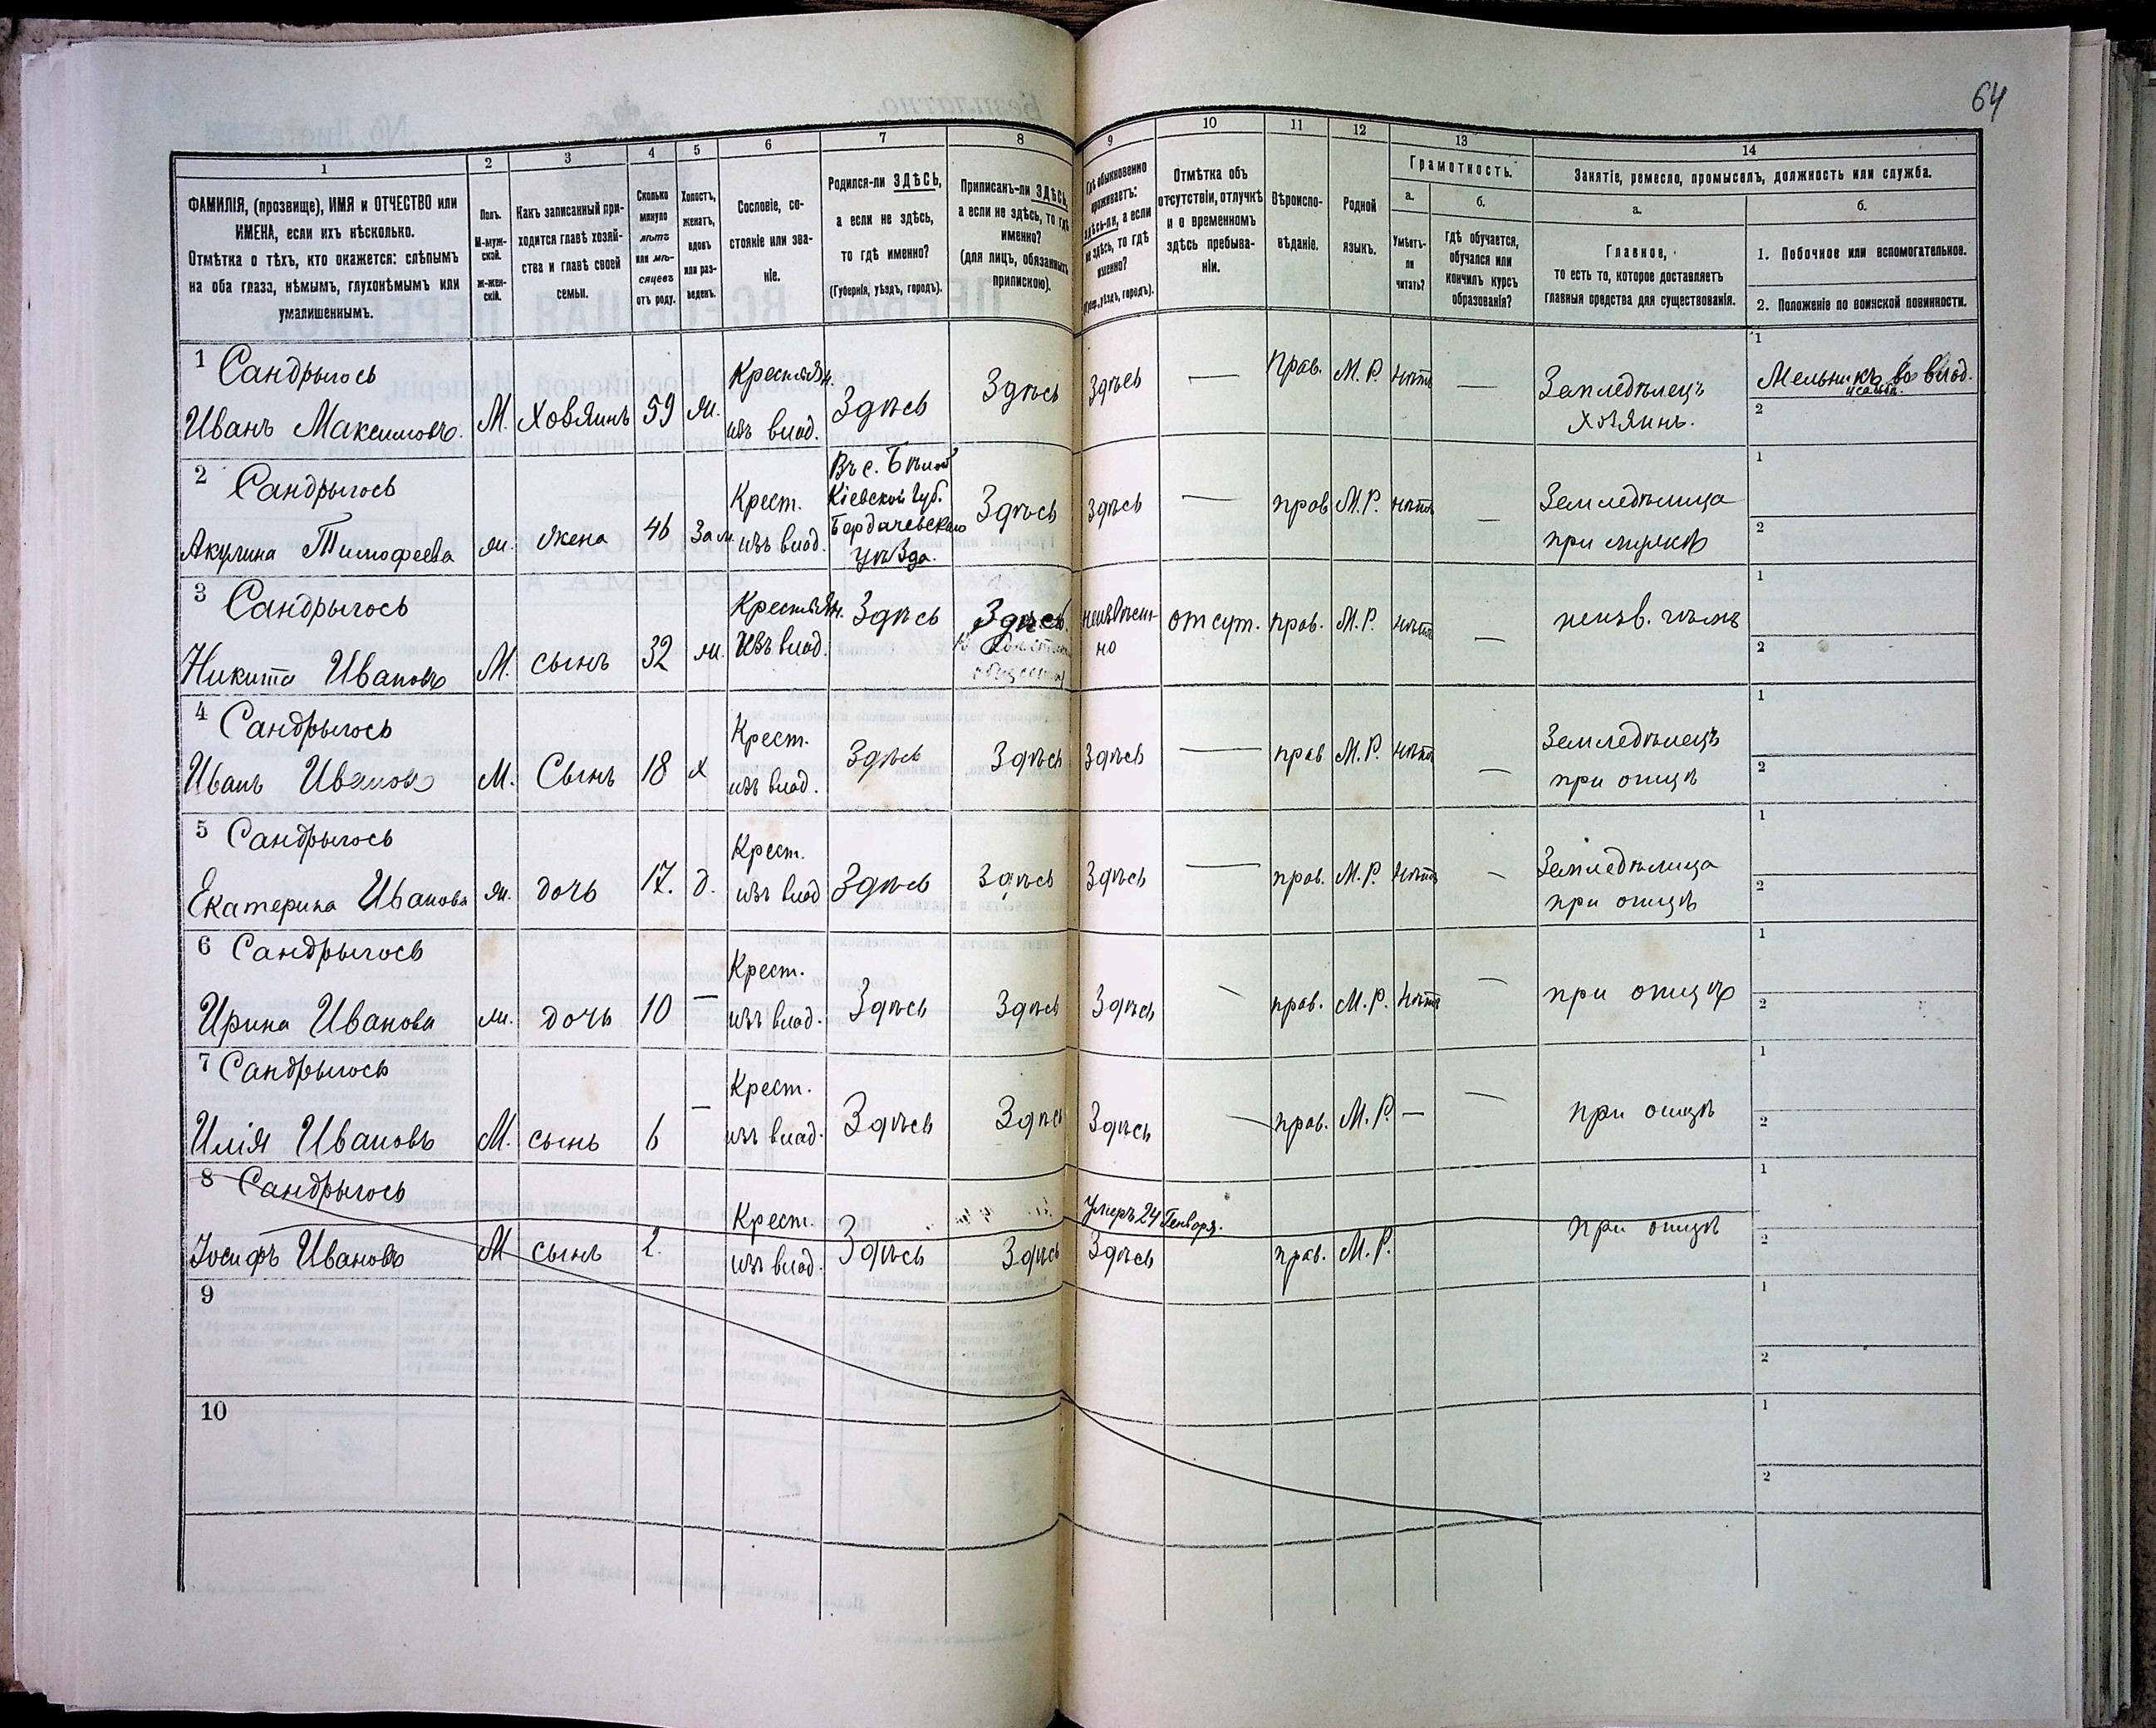 64
1
2
3
4
5
6
7
8
9
10
11
12
13
14
ФАМИЛІЯ, (прозвище), ИМЯ и ОТЧЕСТВО или
ИМЕНА, если ихъ нѣсколько.
Отмѣтка о тѣхъ, кто окажется: слѣпымъ
на оба глаза, нѣмымъ, глухонѣмымъ или
умалишеннымъ.
Полъ.
М-муж-
ской.
ж-жен-
скій.
Какъ записанный при-
ходится главѣ хозяй-
ства и главѣ своей
семьи.
Сколько
минуло
лѣтъ
или мѣ-
сяцевъ
отъ роду.
Холостъ,
женатъ,
вдовъ
или раз-
веденъ.
Сословіе, со-
стояніе или зва-
ніе.
Родился-ли ЗДѢСЬ,
а если не здѣсь,
то гдѣ именно?
(Губернія, уѣздъ, городъ).
Приписанъ-ли ЗДѢСЬ,
а если не здѣсь, то гдѣ
именно?
(для лицъ, обязанныхъ
припискою).
Гдѣ обыкновенно
проживаетъ:
здѣсь-ли, а если
не здѣсь, то гдѣ
именно?
(Губ., уѣздъ, городъ).
Отмѣтка объ
отсутствіи, отлучкѣ
и о временномъ
здѣсь пребыва-
ніи.
Вѣроиспо-
вѣданіе.
Родной
языкъ.
Грамотность.
а.
Умѣетъ-
ли
читать?
б.
гдѣ обучается,
обучался или
кончилъ курсъ
образованія?
Занятіе, ремесло, промыселъ, должность или служба.
а.
Главное,
то есть то, которое доставляетъ
главныя средства для существованія.
б.
1. Побочное или вспомогательное.
2. Положеніе по воинской повинности.
1 Сандрыгось
Иванъ Максимовъ. М. Хозяинъ 59 ж.
Крестьян.
изъ влад.
Здѣсь Здѣсь Здѣсь — Прав. М. Р. нѣтъ —
Земледѣлецъ
Хозяинъ.
1 Мельникъ во влад.
2
2 Сандрыгось
Акулина Тимофеева ж. жена 46 Зам.
Крест.
изъ влад.
Въ с. Бѣлой
Кіевской Губ.
Бердичевскаго
уѣзда.
Здѣсь здѣсь — прав М. Р. нѣтъ —
Земледѣлица
при мужѣ
1
2
3 Сандрыгось
Никита Ивановъ М. сынъ 32 ж.
Крестьян.
Изъ влад.
Здѣсь Здѣсь.
неизвѣст-
но
отсут. прав. М. Р. нѣтъ —
неизв. чѣмъ
1
2
4 Сандрыгось
Иванъ Ивановъ М. Сынъ 18 х
Крест.
изъ влад.
Здѣсь Здѣсь Здѣсь — прав М. Р. нѣтъ —
Земледѣлецъ
при отцѣ
1
2
5 Сандрыгось
Екатерина Иванова ж. дочь 17. д.
Крест.
изъ влад
Здѣсь Здѣсь Здѣсь — прав. М. Р. Нѣтъ —
Земледѣлица
при отцѣ
1
2
6 Сандрыгось
Ирина Иванова ж. дочь 10 —
Крест.
изъ влад.
Здѣсь Здѣсь Здѣсь — прав. М. Р. Нѣтъ —
при отцѣ
1
2
7 Сандрыгось
Илія Ивановъ М. сынъ 6 —
Крест.
изъ влад.
Здѣсь Здѣсь Здѣсь — прав. М. Р. — —
при отцѣ
1
2
8 Сандрыгось
Іосифъ Ивановъ М сынъ 2.
Крест.
изъ влад.
Здѣсь Здѣсь
Умеръ 24 Генваря.
Здѣсь прав. М. Р.
при отцѣ
1
2
9
1
2
10
1
2